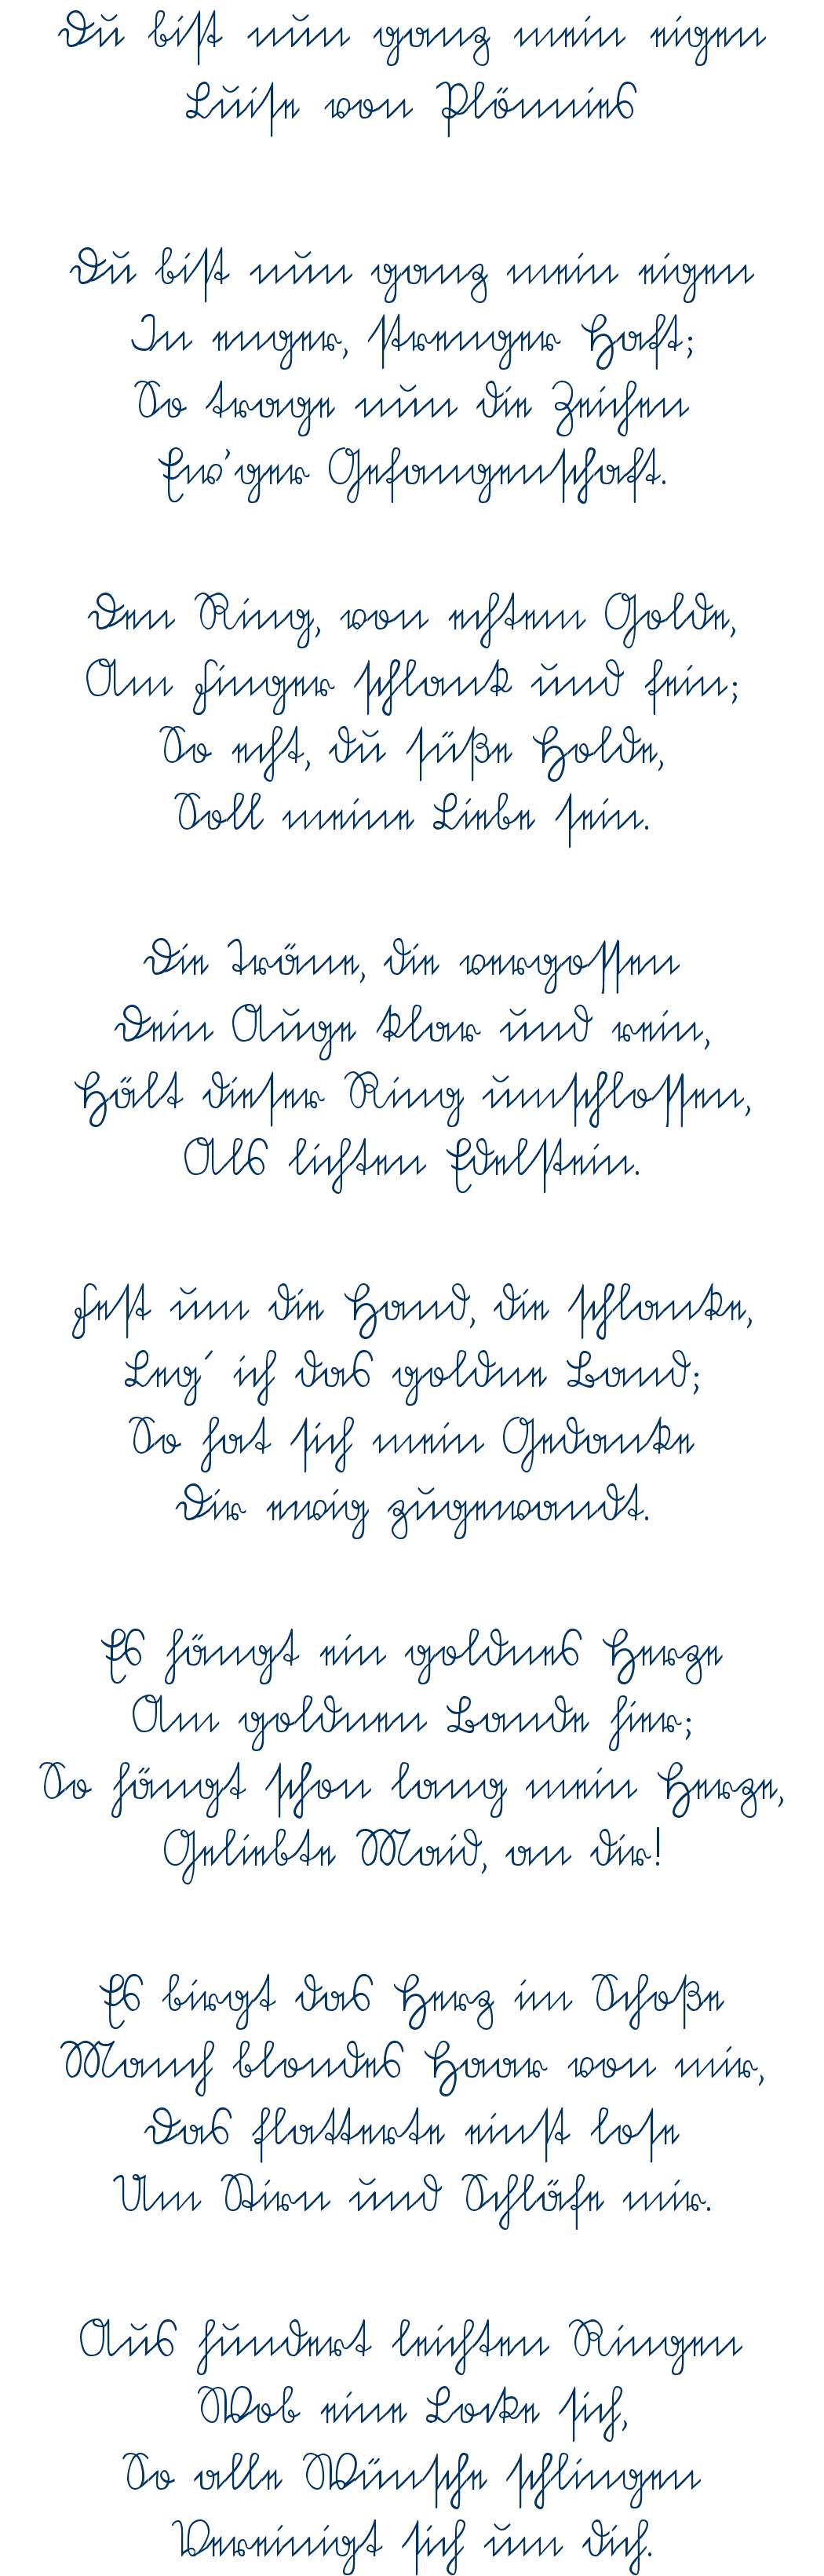 Du bist nun ganz mein eigen
Luise von Plönnies
Du bist nun ganz mein eigen
In enger, strenger Haft;
So trage nun die Zeichen
Ew'ger Gefangenschaft.
Den Ring, von echtem Golde,
Am Finger schlank und fein;
So echt, du süße Holde,
Soll meine Liebe sein.
Die Träne, die vergossen
Dein Auge klar und rein,
Hält dieser Ring umschlossen,
Als lichten Edelstein.
Fest um die Hand, die schlanke,
Leg´ ich das goldne Band;
So hat sich mein Gedanke
Dir ewig zugewandt.
Es hängt ein goldnes Herze
Am goldnen Bande hier;
So hängt schon lang mein Herze,
Geliebte Maid, an dir!
Es birgt das Herz im Schoße
Manch blondes Haar von mir,
Das flatterte einst lose
Um Stirn und Schläfe mir.
Aus hundert leichten Ringen
Wob eine Locke sich,
So alle Wünsche schlingen
Vereinigt sich um dich.